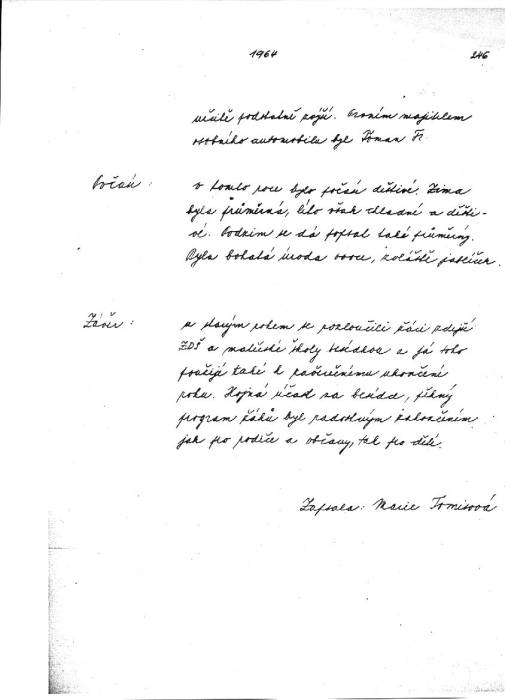 1964 246
určitě podstatně zvýší. Prvním majitelem
osobního automobilu byl Toman Fr.
Počasí :
v tomto roce bylo počasí deštivé. Zima
byla průměrná, léto však chladné a dešti-
vé. Podzim se dá popsat také průměrný.
Byla bohatá úroda ovoce, zvláště jablíček.
Závěr :
se starým rokem se rozloučili žáci zdejší
ZDŠ a mateřské školy besídkou a já toho
použiji také k závěrečnému ukončení
roku. Hojná účast na besídce, pěkný
program žáků byl radostným zakončením
jak pro rodiče a občany, tak pro děti.
Zapsala: Marie Tomisová